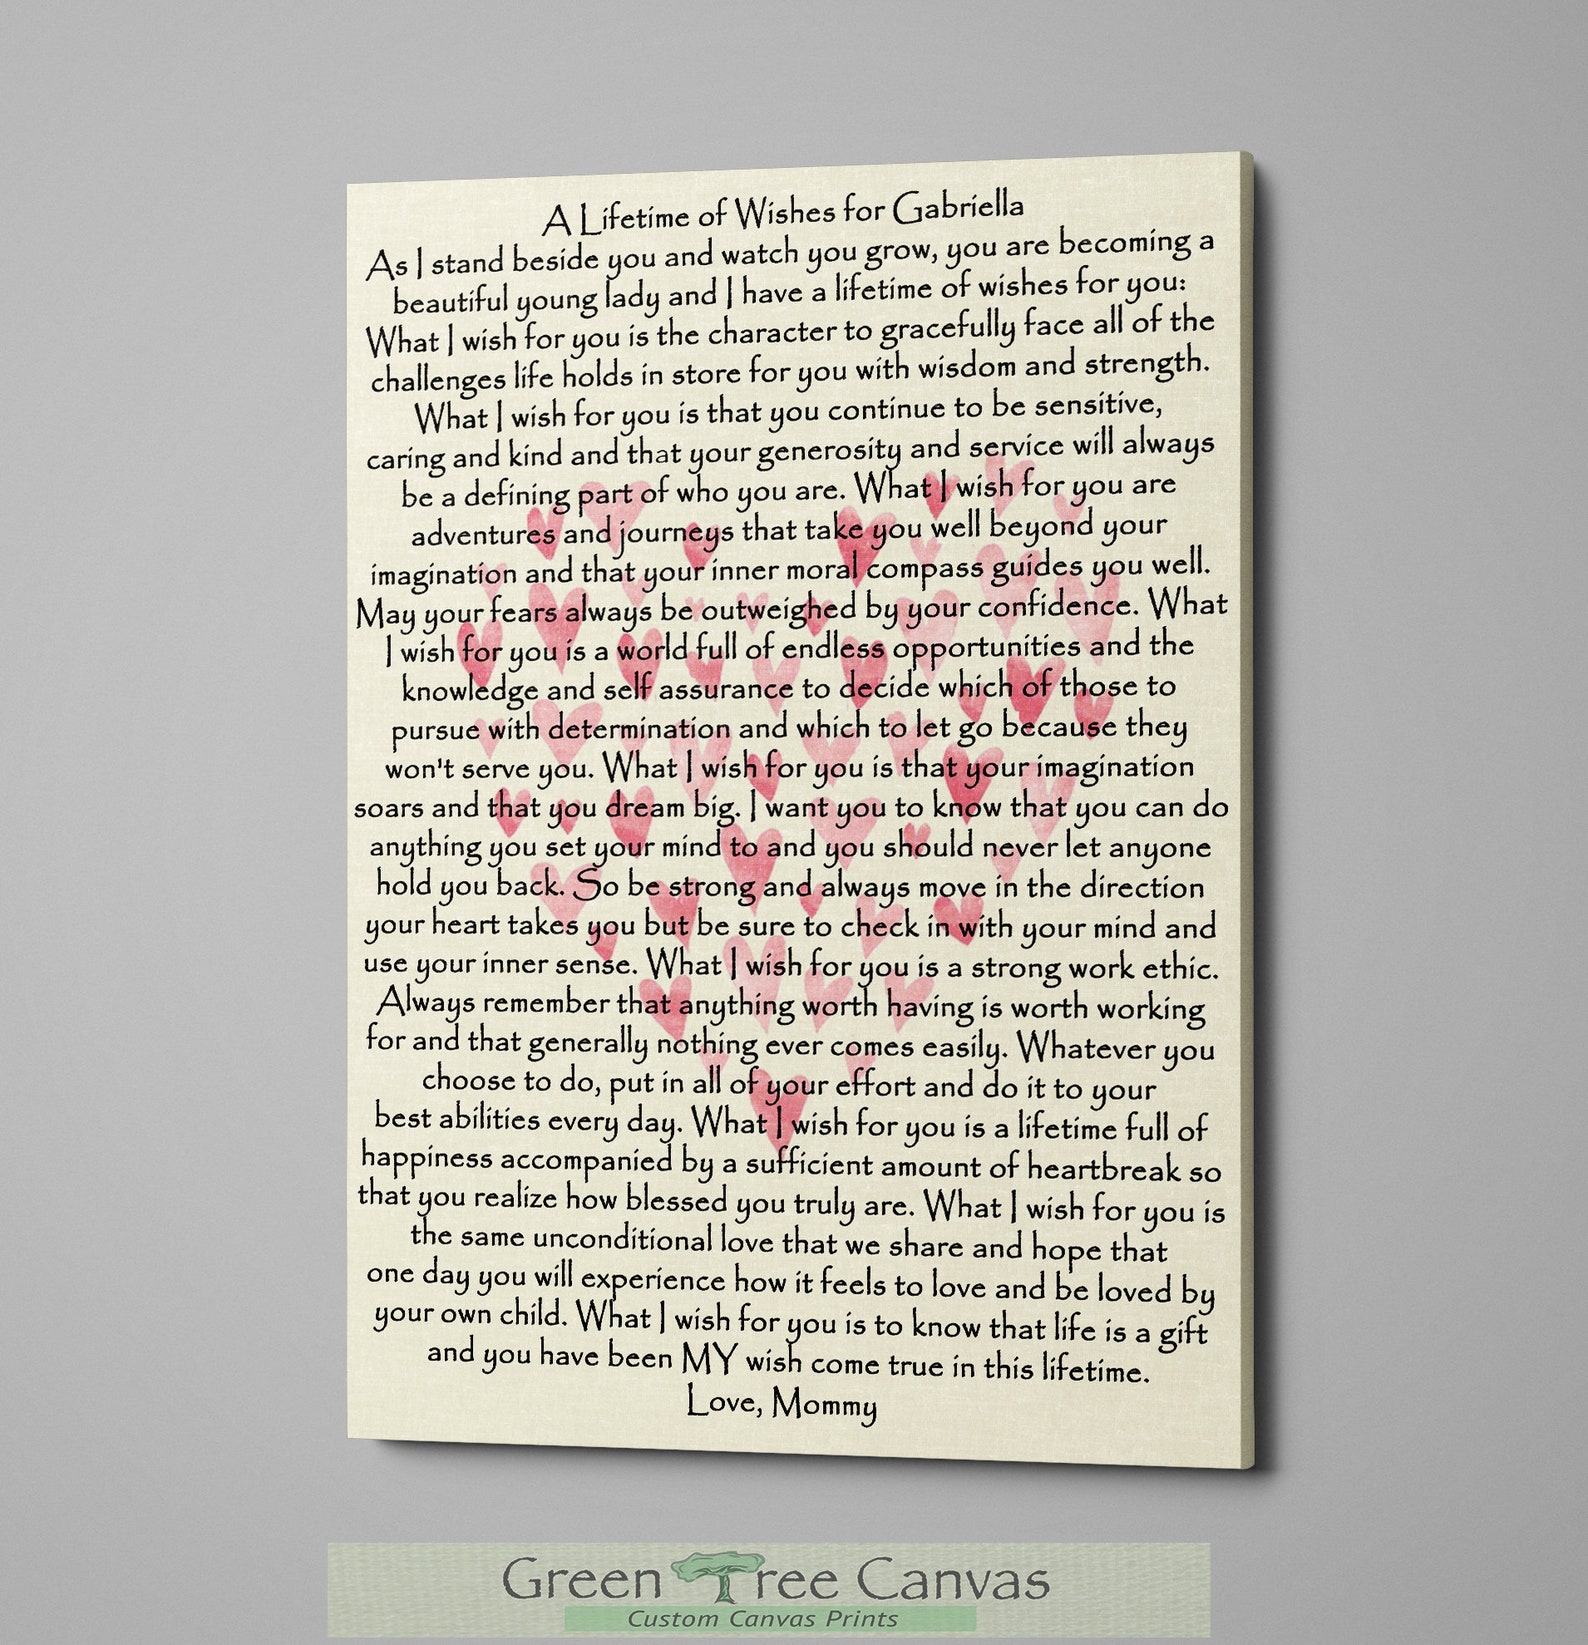 A Lifetime of Wishes for Gabriella
As I stand beside you and watch you grow, you are becoming a
beautiful young lady and I have a lifetime of wishes for you:
What I wish for you is the character to gracefully face all of the
challenges life holds in store for you with wisdom and strength.
What I wish for you is that you continue to be sensitive,
caring and kind and that your generosity and service will always
be a defining part of who you are. What I wish for you are
adventures and journeys that take you well beyond your
imagination and that your inner moral compass guides you well.
May your fears always be outweighed by your confidence. What
I wish for you is a world full of endless opportunities and the
knowledge and self assurance to decide which of those to
pursue with determination and which to let go because they
won't serve you. What I wish for you is that your imagination
soars and that you dream big. I want you to know that you can do
anything you set your mind to and you should never let anyone
hold you back. So be strong and always move in the direction
your heart takes you but be sure to check in with your mind and
use your inner sense. What I wish for you is a strong work ethic.
Always remember that anything worth having is worth working
for and that generally nothing ever comes easily. Whatever you
choose to do, put in all of your effort and do it to your
best abilities every day. What I wish for you is a lifetime full of
happiness accompanied by a sufficient amount of heartbreak so
that you realize how blessed you truly are. What I wish for you is
the same unconditional love that we share and hope that
one day you will experience how it feels to love and be loved by
your own child. What I wish for you is to know that life is a gift
and you have been MY wish come true in this lifetime.
Love, Mommy
Green Tree Canvas
Custom Canvas Prints